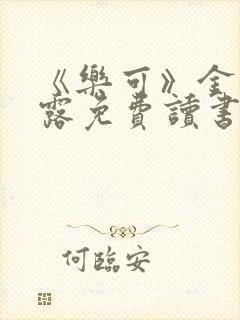 《樂可》全
露免費讀書
何臨安